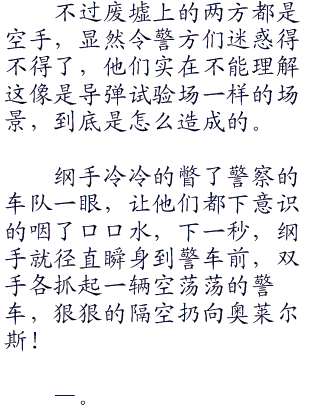 不过废墟上的两方都是
空手，显然令警方们迷惑得
不得了，他们实在不能理解
这像是导弹试验场一样的场
景，到底是怎么造成的。
纲手冷冷的瞥了警察的
车队一眼，让他们都下意识
的咽了口口水，下一秒，纲
手就径直瞬身到警车前，双
手各抓起一辆空荡荡的警
车，狠狠的隔空扔向奥莱尔
斯！
一。